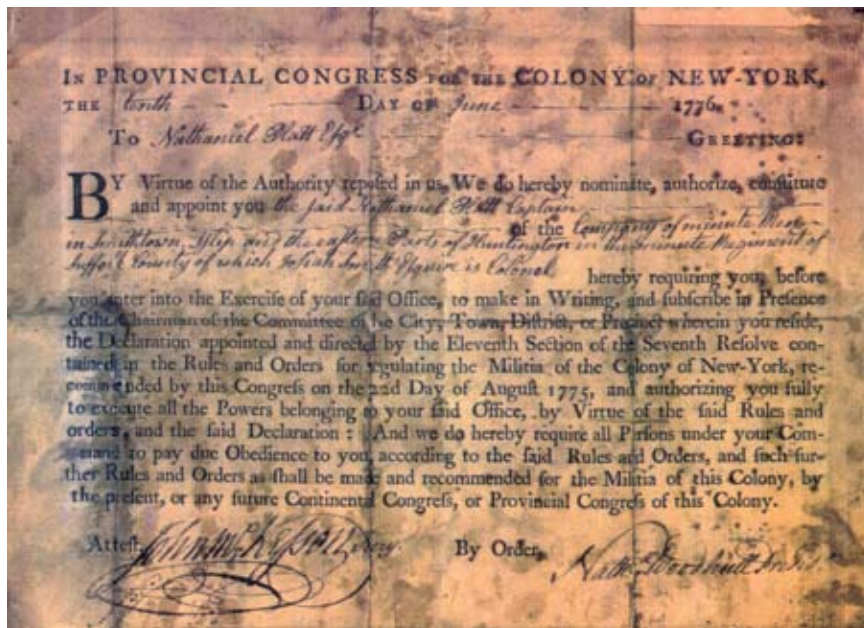 In PROVINCIAL CONGRESS for the COLONY of NEW-YORK,
the tenth Day of June 1776.
To Nathaniel Platt Esqr Greeting:
BY Virtue of the Authority reposed in us, We do hereby nominate, authorize, constitute
and appoint you the said Nathaniel Platt Captain
of the Company of minute Men
in Smithtown, Islip and the eastern Parts of Huntington in the minute Regiment of
Suffolk County of which Josiah Smith Esquire is Colonel
hereby requiring you, before
you enter into the Exercise of your said Office, to make in Writing, and subscribe in Presence
of the Chairman of the Committee of the City, Town, District, or Precinct wherein you reside,
the Declaration appointed and directed by the Eleventh Section of the Seventh Resolve con-
tained in the Rules and Orders for regulating the Militia of the Colony of New-York, re-
commended by this Congress on the 22d Day of August 1775, and authorizing you fully
to execute all the Powers belonging to your said Office, by Virtue of the said Rules and
orders, and the said Declaration: And we do hereby require all Persons under your Com-
mand to pay due Obedience to you, according to the said Rules and Orders, and such fur-
ther Rules and Orders as shall be made and recommended for the Militia of this Colony, by
the present, or any future Continental Congress, or Provincial Congress of this Colony.
Attest. John McKesson Secry. By Order, Nathl Woodhull Presidt